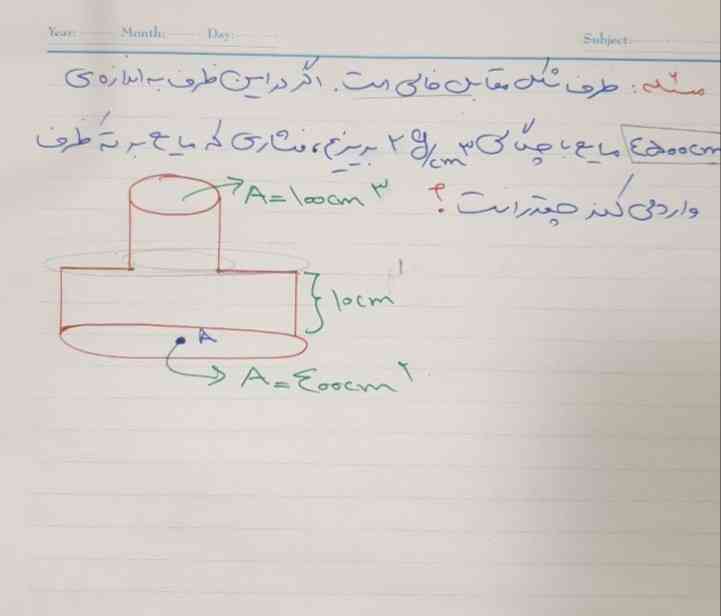 Year: Month: Day: Subject:
مسئله: ظرف شکل مقابل خالی است. اگر در این ظرف به اندازه‌ی
٤٥٠٠cm مایع با چگالی ۲ g/cm۳ بریزیم، فشاری که مایع بر ته ظرف
وارد می کند چقدر است ؟
A=۱۰۰cm۳
۱۰cm
A
A=٤٠٠cm۲